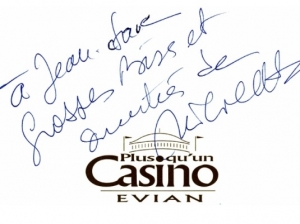 à Jean-
grosses bises et
amitiés de
Plus qu'un
Casino
EVIAN